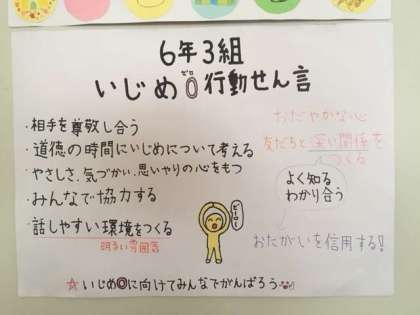 6年3組
いじめ0行動せん言
ゼロ
・相手を尊敬し合う
・道徳の時間にいじめについて考える
・やさしさ、気づかい、思いやりの心をもつ
・みんなで協力する
・話しやすい環境をつくる
明るい雰囲気
おだやかな心
友だちと深い関係を
つくる
よく知る
わかり合う
おたがいを信用する!
ゼーロー
☆いじめ0に向けてみんなでがんばろう